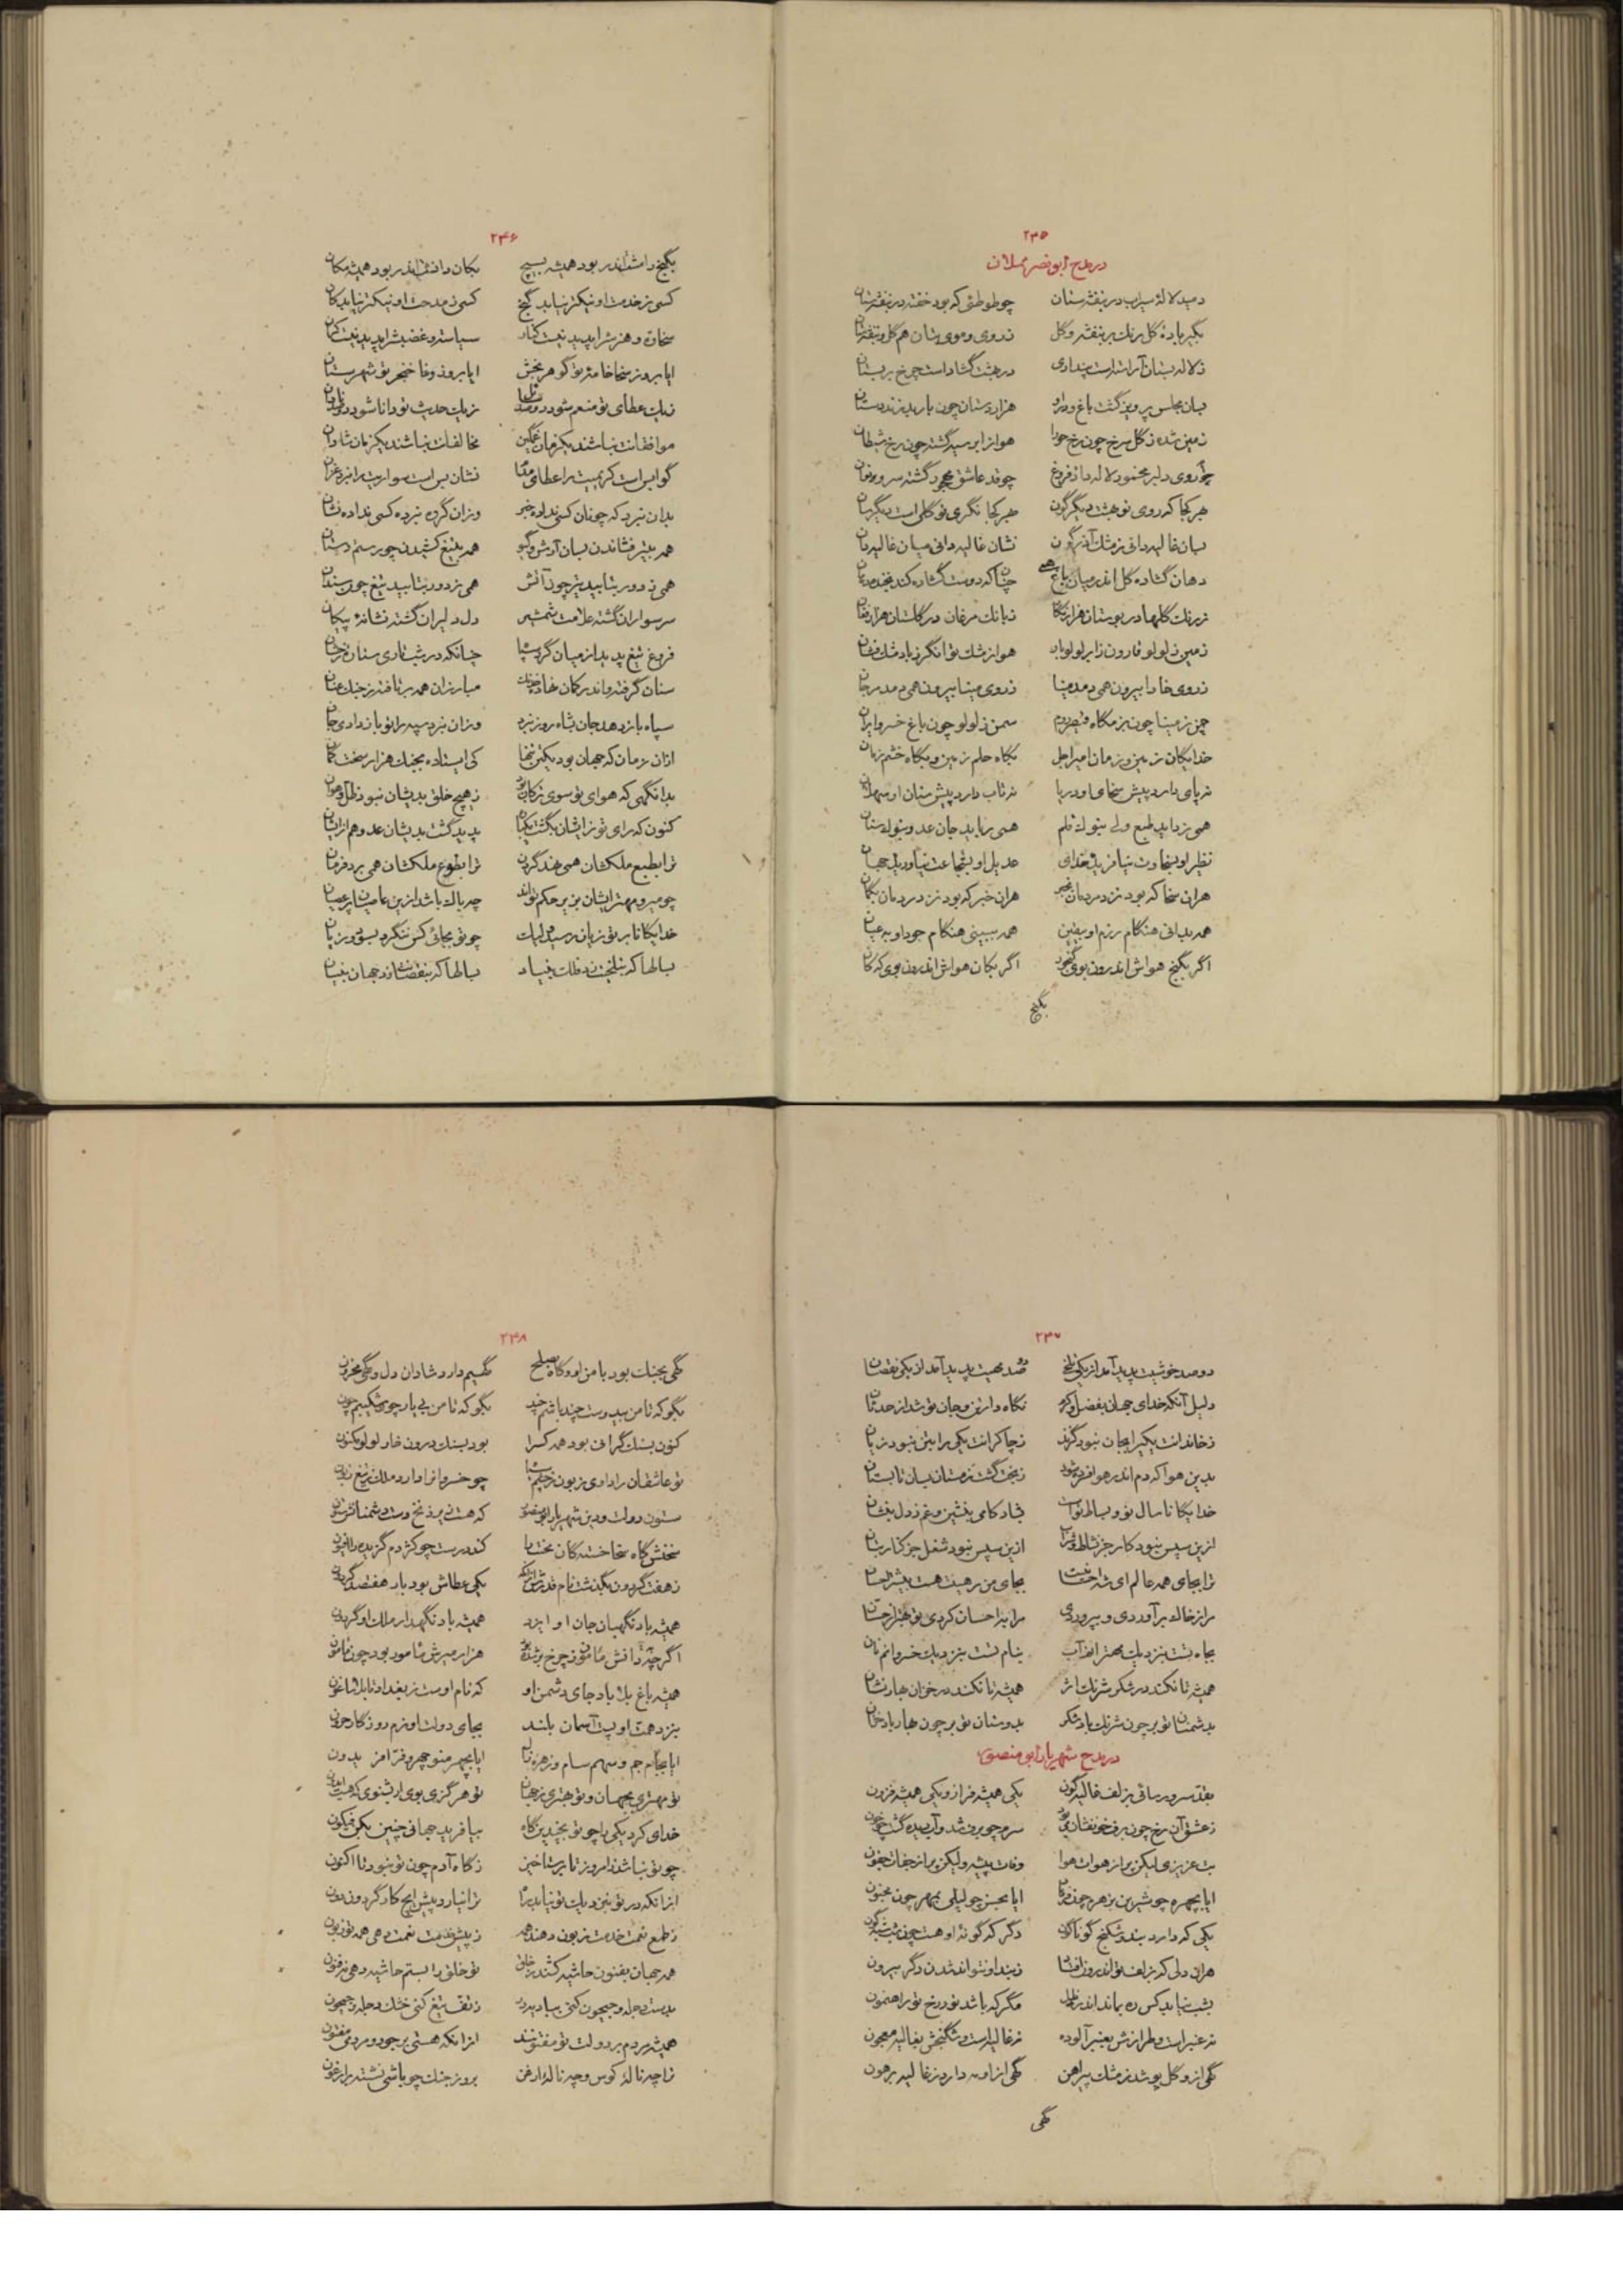 ۲۴۵
در مدح ابونصر مملان
دمید لالهٔ سیراب در بنفشه ستان چو طوطئی که بود خفته در بنفشه ستان
بگیر بادهٔ گل رنگ بر بنفشه و گل ز روی و موی بتان هم گل و بنفشه ستان
ز لاله بستان آراسته است پنداری در بهشت گشاده است چرخ بر بستان
بسان مجلس پرویز گشت باغ و درو هزاردستان چون باربد زند دستان
زمین شده ز گل سرخ چون رخ حورا هوا ز ابر سیه گشته چون رخ شیطان
چو روی دلبر مخمور لاله داده فروغ چو قد عاشق مهجور گشته سرو نوان
بهر کجا که روی نو بهشت دیگرگون بهر کجا نگری نو گلی است دیگرسان
بسان غالیه دانی ز مشک آذرگون نشان غالیه دانی میان غالیه دان
دهان گشاده گل اندر میان باغ همی چنان که دوست گشاده کند بخنده دهان
ز رنگ گلها در بوستان هزار نگار ز بانگ مرغان در گلستان هزار فغان
زمین ز لولو قارون ز ابر لولو بار هوا ز مشک توانگر ز باد مشک فشان
ز روی خارا بیرون همی دمد مینا ز روی مینا بیرون همی دمد مرجان
چمن ز مینا چون بزمگاه قیصر روم سمن ز لولو چون باغ خسرو ایران
خدایگان زمین و زمان امیر اجل بگاه حلم زمین و بگاه خشم زمان
نه پای دارد پیش سخای او دریا نه تاب دارد پیش سنان او سهلان
همی زداید طبع ولی بنوک قلم همی رباید جان عدو بنوک سنان
نظیر او بسخاوت نیافرید خدای عدیل او بشجاعت نیاورید جهان
هران سخا که بود نزد مردمان بخبر هران خبر که بود نزد مردمان بگمان
همه بدانی هنگام رزم او بیقین همه ببینی هنگام جود او بعیان
اگر بگنج هواش اندرون بوی گنجور اگر بکان هواش اندرون بوی که کان
بگنج
۲۴۶
بگنج دامنش اندر بود همیشه بسیج بکان دانش اندر بود همیشه مکان
کسی ز خدمت او نیکتر نیابد گنج کسی ز مدحت او نیکتر نیابد کان
سخاوت و هنرش را پدید نیست کنار سیاست و غضبش را پدید نیست کران
ایا بروز سخا خامهٔ تو گوهر بخش ایا بروز وغا خنجر تو شهرستان
ز یک عطای تو منعم شود دو صد
ز یک حدیث تو دانا شود دو صد نادان
موافقانت نباشند یکزمان غمگین مخالفانت نباشند یکزمان شادان
گوا بس است کریمیت را عطای نشان بس است سواریت را نبرد
بدان نبرد که چونان کسی نداده خبر وزان گروه نبرده کسی نداده نشان
همه بتیر فشاندن بسان آرش و گیو همه بتیغ کشیدن چو رستم دستان
همی ز دور بتابید تیر چون آتش همی ز دور بتابید تیغ چون سندان
سر سواران گشته علامت شمشیر دل دلیران گشته نشانهٔ پیکان
فروغ تیغ پدید از میان گرد سپاه چنانکه در شب تاری ستارهٔ رخشان
سنان گرفته و اندر کمان نهاده خدنگ مبارزان همه بر تافته ز جنگ عنان
سپاه باز دهد جان شاه روز نبرد وزان نبرد سپه را تو باز دادی جان
از آن زمان که جهان بود یکتن تنها کی ایستاده بجنگ هزار سخت کمان
بدانگهی که هوای تو سوی ترکان بود ز هیچ خلق بدیشان نبود ظلم و هوان
کنون که رای تو ز ایشان بگشت یکباره پدید گشت بدیشان عدو هم از ایشان
ترا بطبع ملکشان همی نهد گردن ترا بطوع ملکشان همی برد فرمان
چو میر و مهتر ایشان بزیر حکم تواند چه باک باشد ازین عاصیان پر عصیان
خدایگانا بر تو زیان رسید و لیک چو تو بجائی کس ننگرد بسود و زیان
بسالها که بتلخیت زد فلک بنیاد بسالها که بنقصانت زد جهان بنیان
۲۴۷
دو صد خوشیت پدید آمد از یکی تلخی دو صد بهیت پدید آمد از یکی نقصان
دلیل آنکه خدای جهان بفضل و کرم نگاه دار تن و جان تو شد از حدثان
ز خاندانت یکی را بجان نبود گزند ز چاکرانت یکی را بتن نبود زیان
بدین هوا که دم اندر هوا فسرده شود ز بخت گشت زمستان بسان تابستان
خدایگانا سال نو و بساط نو است بشادکامی بنشین و غم ز دل بنشان
ازین سپس نبود کار جز نشاط و شراب ازین سپس نبود شغل جز کنار بتان
ترا بجای همه عالم ای شه احسانست بجای من رهیت هست بیشتر احسان
مرا ز خاک برآوردی و بپروردی مرا به احسان کردی تو بهتر از حسان
بجاه تست بنزدیک مهتر انم آب بنام تست بنزدیک خسروانم نان
همیشه تا نکند در شکر شرنگ اثر همیشه تا نکند در خزان بهار نشان
بدشمنان تو بر چون شرنگ باد شکر بدوستان تو بر چون بهار باد خزان
در مدح شهریار ابو منصور
بقد سرو رسائی بزلف غالیه‌گون یکی همیشه فراز و یکی همیشه فزون
ز عشق آن رخ چون برف خون فشان بر سرم چو برف شد و آب دیده گشت چو خون
بت عزیزی لیکن براز هوات هوا وفات پیشه ولیکن براز جفات جفون
ایا بچهره چو شیرین بزهره چون فرهاد ایا بحسن چو لیلی بمهر چون مجنون
یکی که دارد بند و شکنج گوناگون دگر که گونهٔ او هست چون شب شبه گون
هران دلی که بزلف تو اندرون افتاد ز بند او نتواند شدن دگر بیرون
بشب نیابد کس ره بماند اندر ظل مگر که باشد نور رخ تو راهنمون
نه عنبر است و طرازش بعنبر آلوده نه غالیه است و شکنجش بغالیه معجون
گهی ازو گل پوشد ز مشک پیراهن گهی ازو مه دارد ز غالیه پرهون
گهی
۲۴۸
گهی بجنگ بود با من او و گاه بصلح گهیم دارد شادان دل و گهی محزون
بگو که تا من بیدوست چند باشم چند بگو که تا من بی یار چون شکیبم چون
کنون بسنگ گرافی بود همه کسرا بود بسنگ درون خار لولو مکنون
تو عاشقان را داری زبون ز خشم چو خسرو اران دارد ملک بتیغ زبون
ستون دولت و دین شهریار ابو منصور که هست زیر زنخ دست دشمنانش ستون
سخنش گاه سخا خستگان محنت را کند درست چو کژدم گزیده را افیون
ز هفت گردون بگذشت نام قدرش از آنک یکی عطاش بود بار هفتصد گردون
همیشه باد نگهبان جان او ایزد همیشه باد نگهدار ملک او گردون
اگرچه دانش مامون ز چرخ برشده بود هزار میرش مامور بود چون مامون
همیشه باغ بلا باد جای دشمن او که نام اوست ز بغداد تا بلاساغون
بنزد همت او پست آسمان بلند بجای دولت او نرم روزگار حرون
ایا بجام جم و سهم سام و زهرهٔ زال ایا بچهر منوچهر و فر افریدون
تو مهتری بجهان و تو بهتری ز جهان
خدای کرد یکی را چو تو بچندین گاه نیافرید جهانی چنین بکن فیکون
چو تو نباشد از امروز تا برستاخیز ز گاه آدم چون تو نبود تا اکنون
از آنکه در تو بنزدیک تو نیاید راه ترا نیارد پیش ایچ کار گردون دون
ز طمع نعمت خدمت زبون دهند همه ز پیش خدمت نعمت دهی همه تو زبون
همه جهان بفنون حاشیه کشند بخلق تو خلق را بستم حاشیه دهی نه فنون
بدست دجله و جیحون کنی بیادیه بر ز تف تیغ کنی خشک دجله و جیحون
همیشه مردم بر دولت تو مفتونند از آنکه هستی بر جود و مردمی مفتون
ترا چه نالهٔ کوس و چه نالهٔ ارغن بروز جنگ چو باشی نشسته بر ارغون